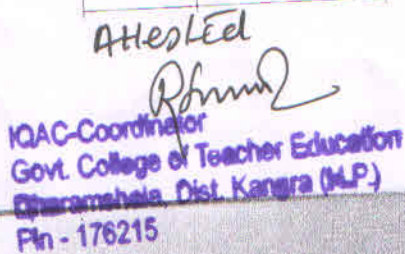 Attested
IQAC-Coordinator
Govt. College of Teacher Education
Dharamshala, Dist. Kangra (H.P.)
Pin - 176215